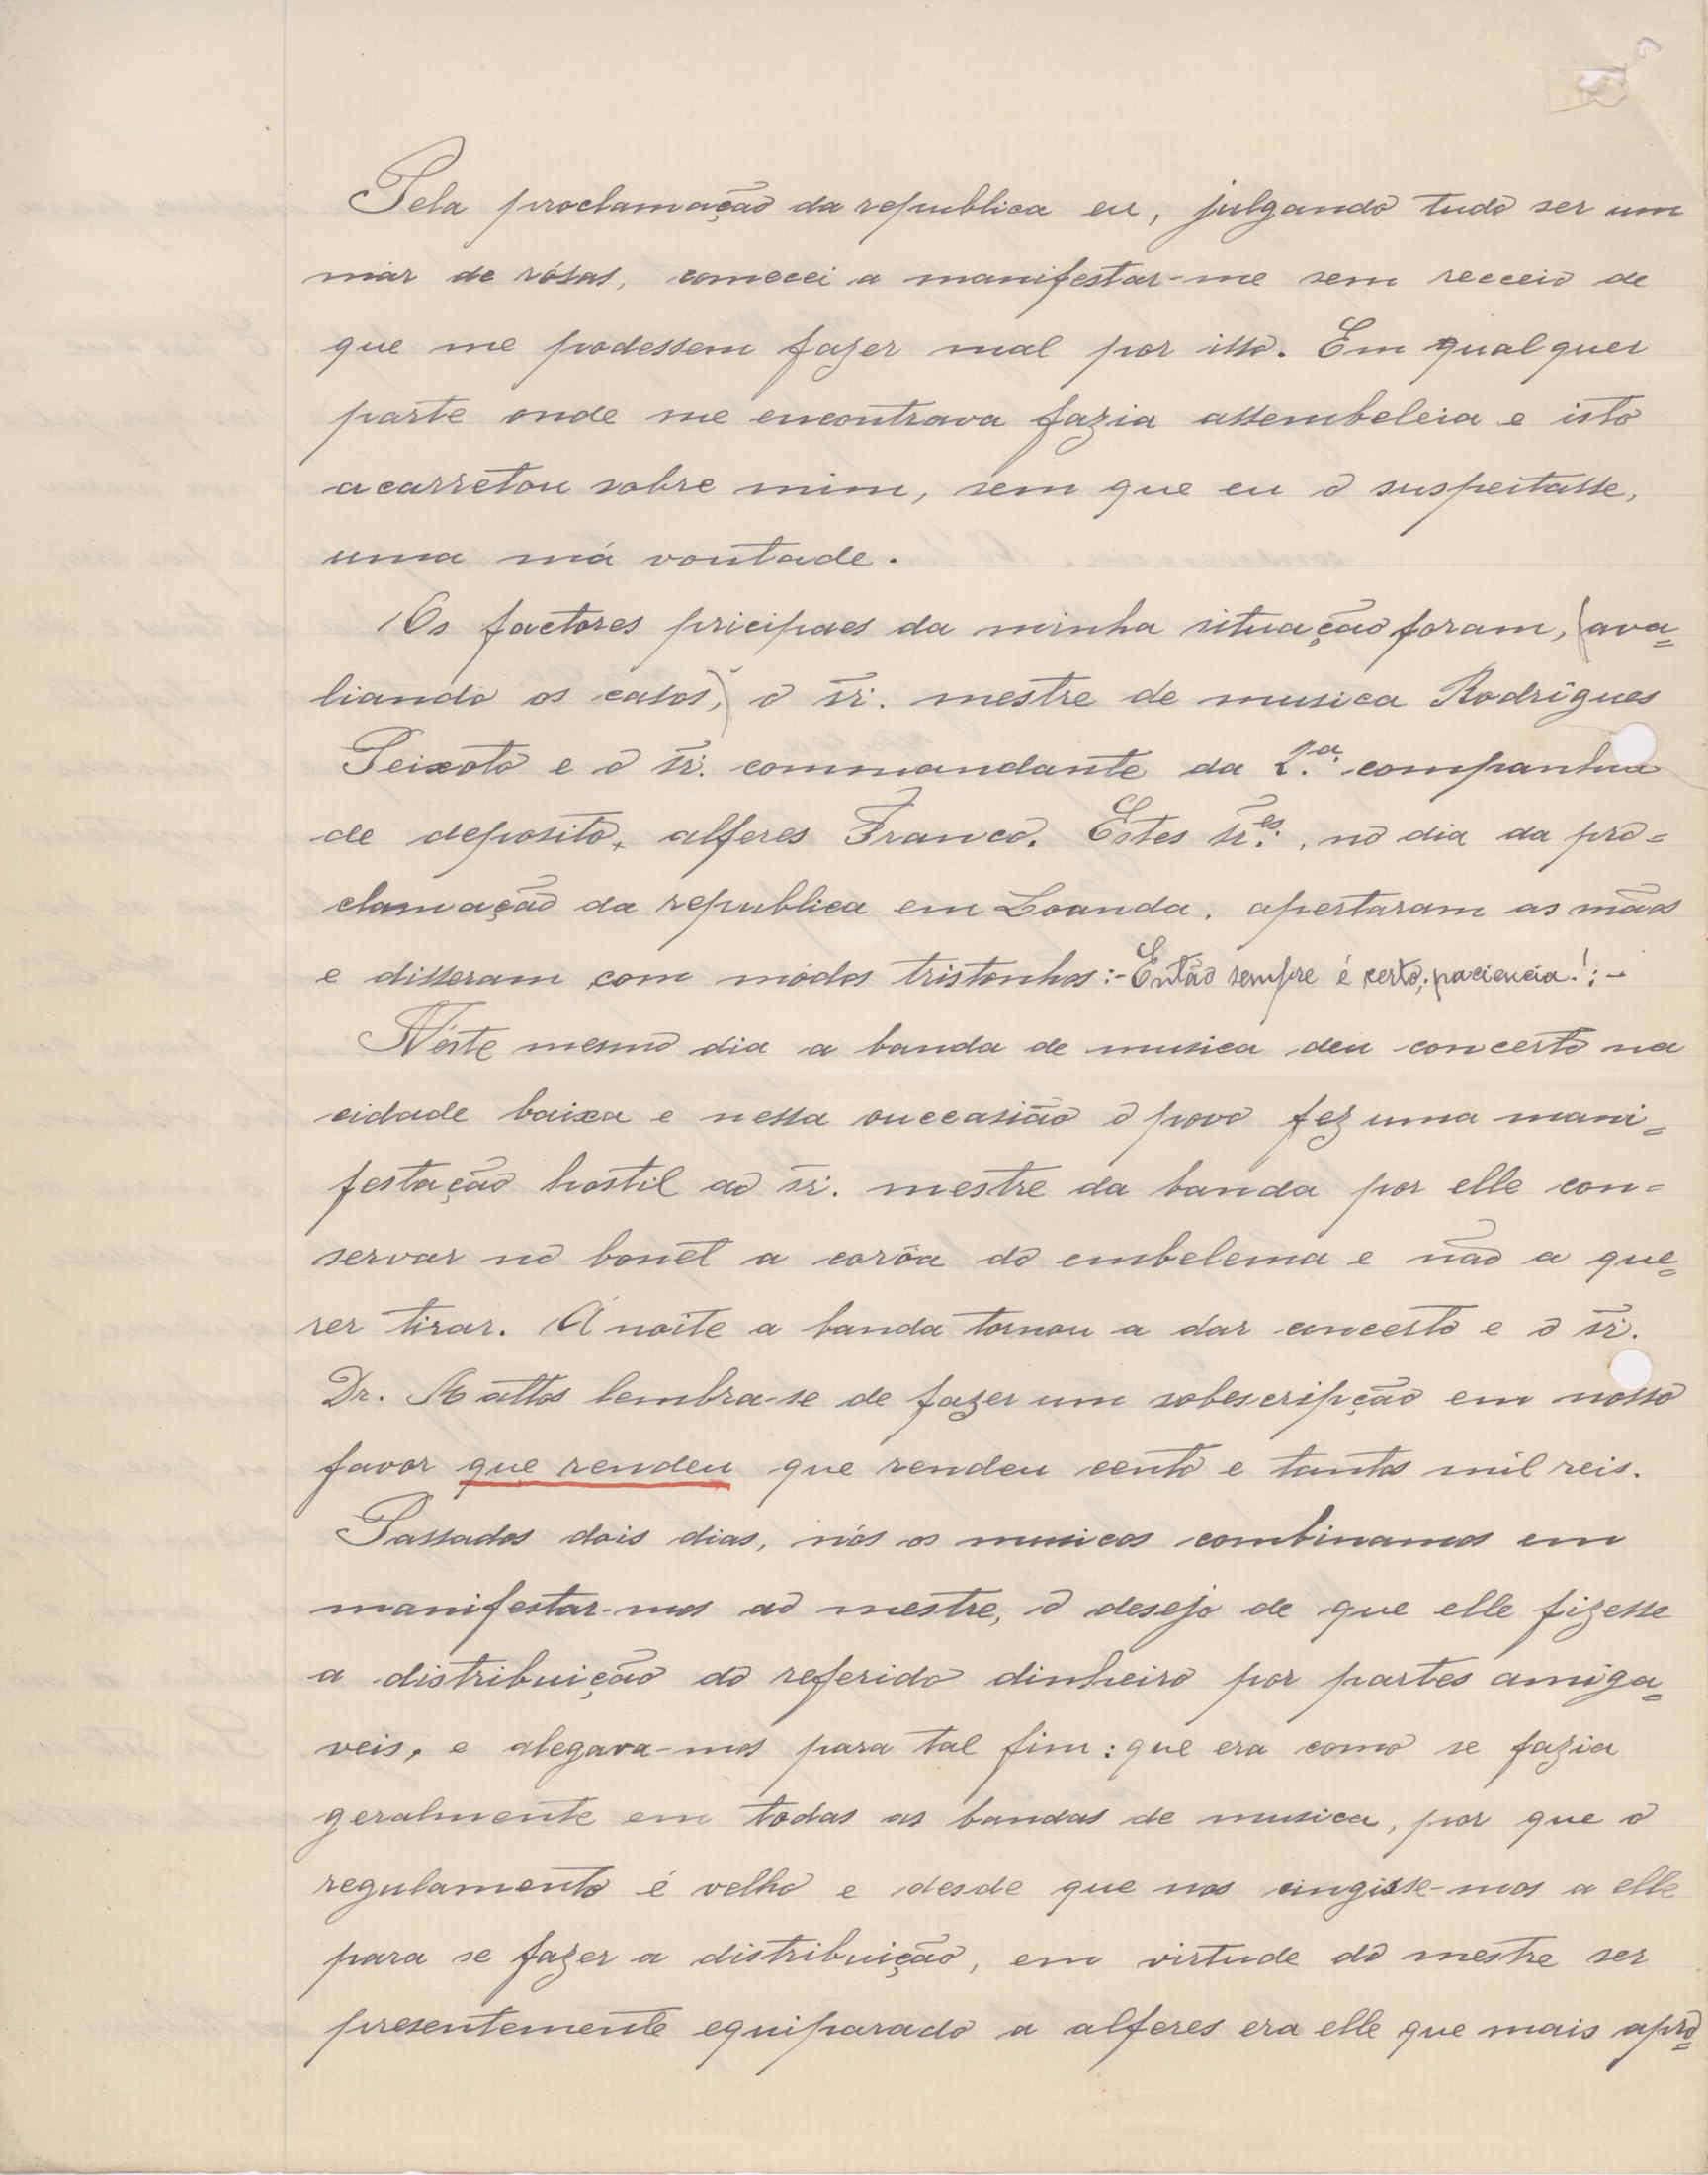 Pela proclamação da republica eu, julgando tudo ser um
mar de rósas, comecei a manifestar-me sem receeio de
que me podessem fazer mal por isso. Em qualquer
parte onde me encontrava fazia assembeleia e isto
acarretou sobre mim, sem que eu o suspeitasse,
uma má vontade.
Os factores pricipaes da minha situação foram, (ava=
liando os casos,) o sr. mestre de musica Rodrigues
Peixoto e o sr. commandante da 2.ª companhia
de deposito, alferes Franco. Estes sr.es, no dia da pro=
clamação da republica em Loanda, apertaram as mãos
e disseram com módos tristonhos:-Então sempre é certo; paciencia!;-
Néste mesmo dia a banda de musica deu concerto na
cidade baixa e nessa ouccasião o povo fez uma mani=
festação hostil ao sr. mestre da banda por elle con=
servar no bonét a corôa do embelema e não a que=
rer tirar. Á noite a banda tornou a dar concerto e o sr.
Dr. Mattos lembra-se de fazer um sobescripção em nosso
favor que rendeu que rendeu cento e tantos mil reis.
Passados dois dias, nós os musicos combinamos em
manifestar-mos ao mestre, o desejo de que elle fizesse
a distribuição do referido dinheiro por partes amiga=
veis, e alegava-mos para tal fim: que era como se fazia
geralmente em todas as bandas de musica, por que o
regulamento é velho e desde que nos cingisse-mos a elle
para se fazer a distribuição, em virtude do mestre ser
presentemente equiparado a alferes era elle que mais apro=